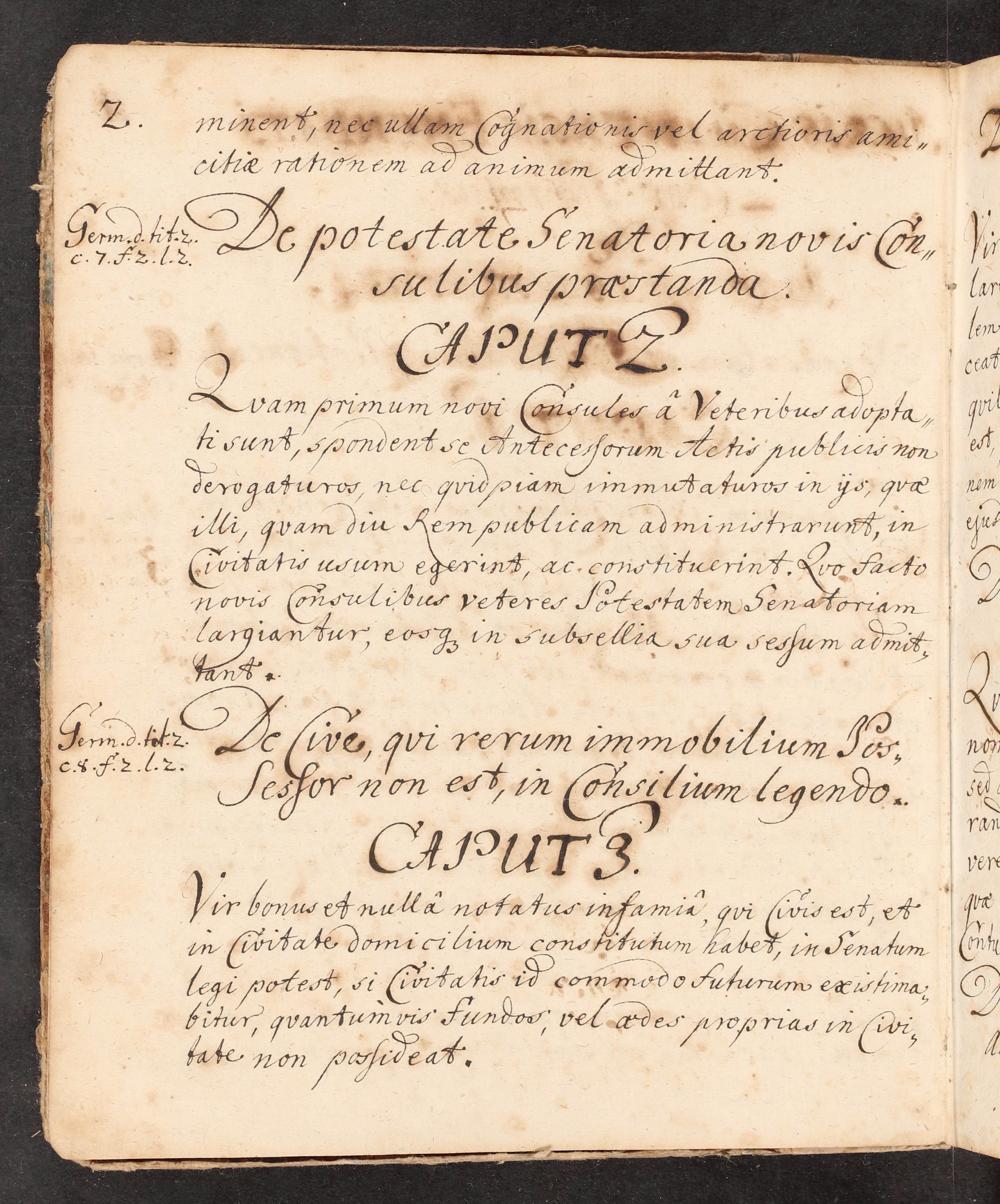 2.
minent, nec ullam Cognationis vel arctioris ami„
citiæ rationem ad animum admittant.
Germ. d. tit. 2.
c. 7. f. 2. l. 2.
De potestate Senatoria novis Con„
sulibus præstanda.
CAPUT 2.
Qvam primum novi Consules â Veteribus adopta„
ti sunt, spondent se Antecessorum Actis publicis non
derogaturos, nec qvidpiam immutaturos in ijs, qvæ
illi, qvam diu Rem publicam administrarunt, in
Civitatis usum egerint, ac constituerint. Qvo facto
novis Consulibus veteres Potestatem Senatoriam
largiantur, eosq₃ in subsellia sua sessum admit„
tant.
Germ. d. tit. 2.
c. 8. f. 2. l. 2.
De Cive, qvi rerum immobilium Pos„
sessor non est, in Consilium legendo.
CAPUT 3.
Vir bonus et nullâ notatus infamiâ, qvi Civis est, et
in Civitate domicilium constitutum habet, in Senatum
legi potest, si Civitatis id commodo futurum existima„
bitur, qvantumvis fundos, vel ædes proprias in Civi„
tate non possideat.